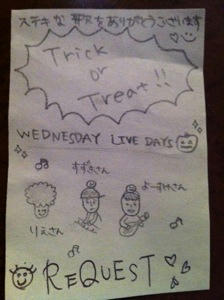 ステキな歌をありがとうございます
Trick
or
Treat!!
WEDNESDAY LIVE DAYS
すずきさん
よーすけさん
りえさん
REQUEST